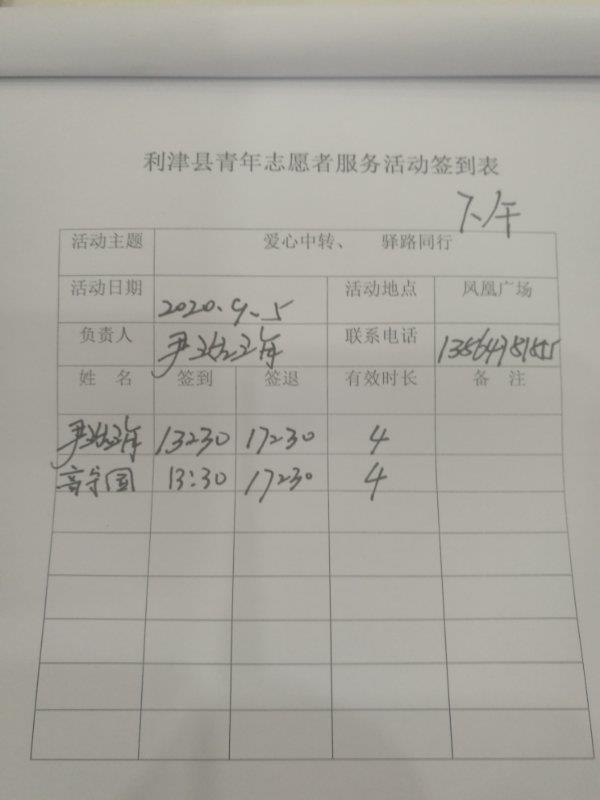 利津县青年志愿者服务活动签到表
下午
活动主题 爱心中转、 驿路同行
活动日期 2020.9.5 活动地点 凤凰广场
负责人 尹 联系电话
姓 名 签到 签退 有效时长 备 注
尹 13:30 17:30 4
高守国 13:30 17:30 4